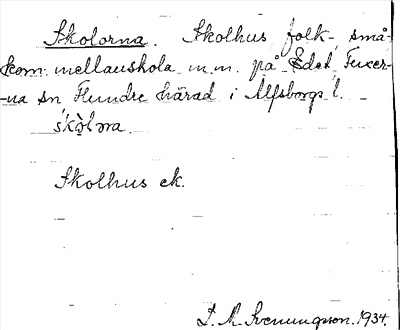 Skolorna. Skolhus folk-, små-
kom. mellanskola m.m. på Edet Fuxer-
-na sn, Flundre härad i Älfsborgs l.
skòlɔra.
Skolhus ek.
J. A. Svenungsson. 1934.